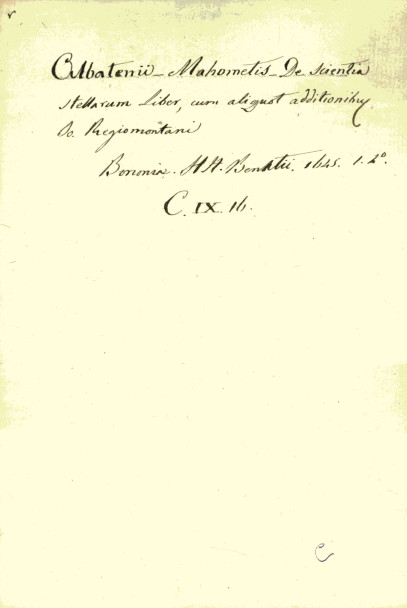 Albatenii - Mahometis - De scientia
stellarum Liber, cum aliquot additionibus
Jo. Regiomontani
Bononiæ. HH. Benatii. 1645. 1. 4º.
C. IX. 16.
C